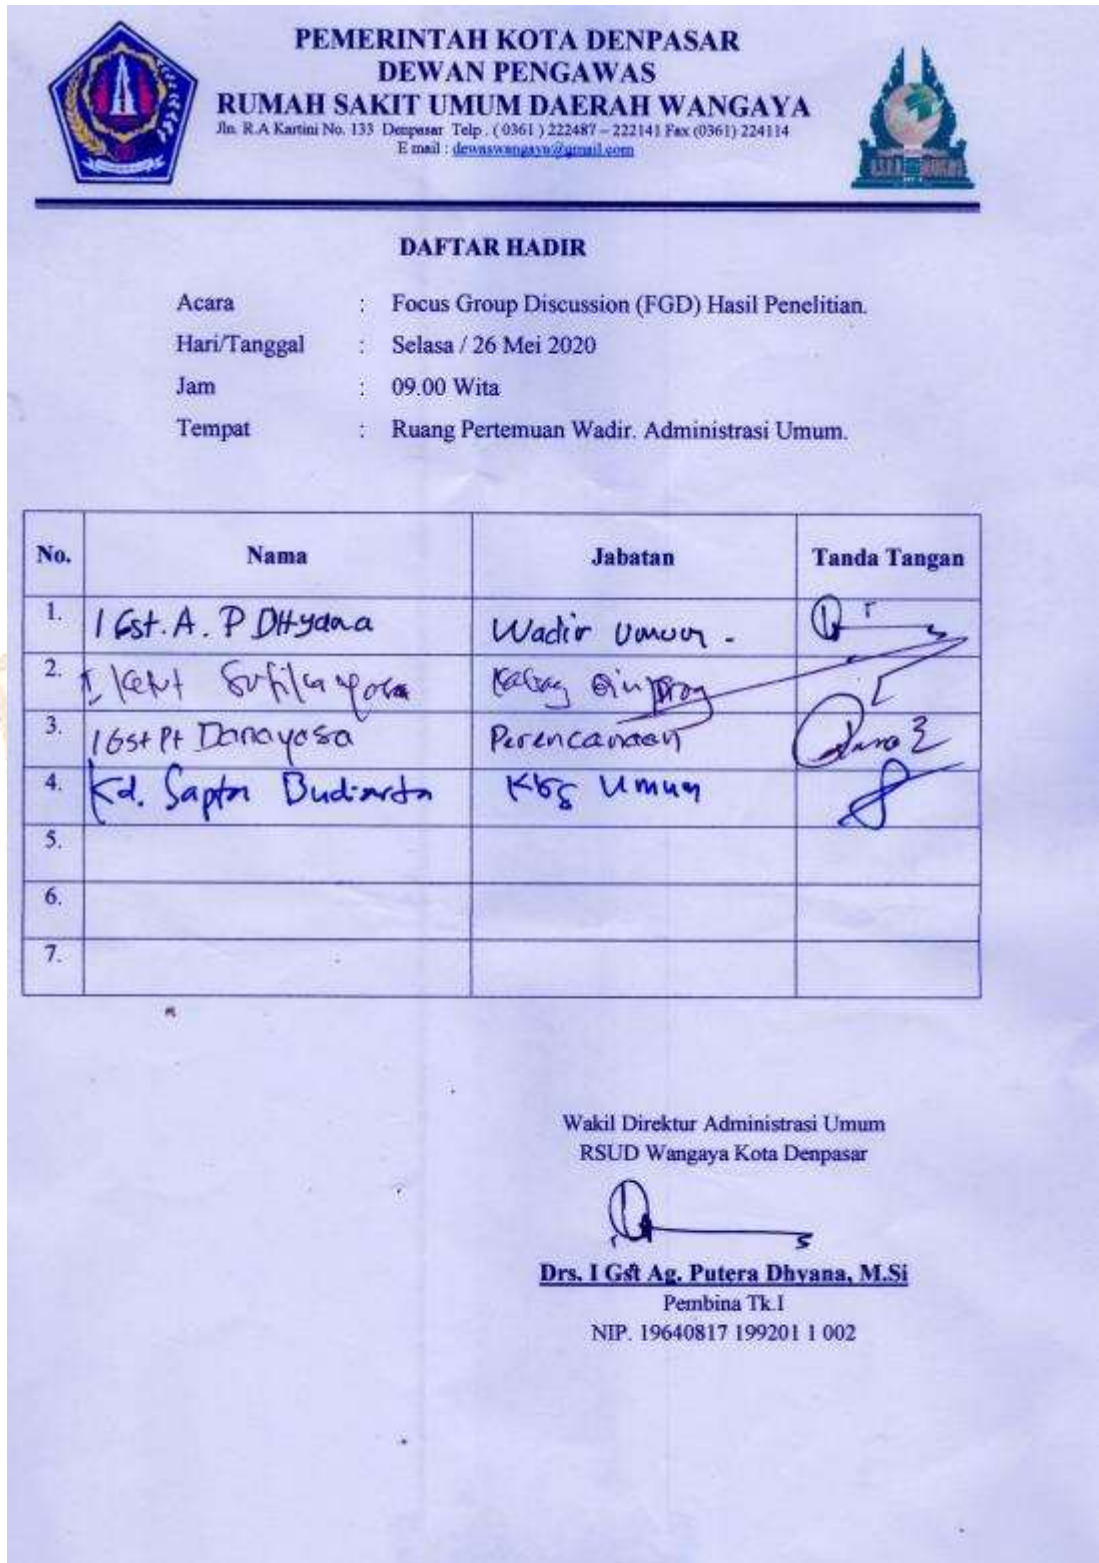 PEMERINTAH KOTA DENPASAR
DEWAN PENGAWAS
RUMAH SAKIT UMUM DAERAH WANGAYA
Jln. R.A Kartini No. 133 Denpasar Telp. ( 0361 ) 222487 – 222141 Fax (0361) 224114
E mail : dewaswangaya@gmail.com
DAFTAR HADIR
Acara : Focus Group Discussion (FGD) Hasil Penelitian.
Hari/Tanggal : Selasa / 26 Mei 2020
Jam : 09.00 Wita
Tempat : Ruang Pertemuan Wadir. Administrasi Umum.
No. Nama Jabatan Tanda Tangan
1. I Gst. A. P DHyana Wadir Umum -
2. I Kabag
3. I Gst Pt Danayasa Perencanaan
4. Kd. Sapta Budiarta Kbg Umum
5.
6.
7.
Wakil Direktur Administrasi Umum
RSUD Wangaya Kota Denpasar
Drs. I Gst Ag. Putera Dhyana, M.Si
Pembina Tk.I
NIP. 19640817 199201 1 002